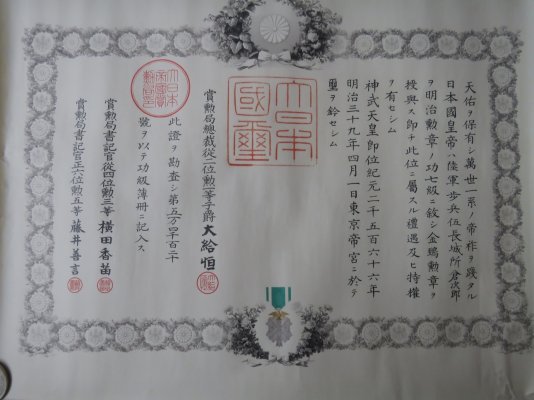 天佑ヲ保有シ萬世一系ノ帝祚ヲ踐タル
日本國皇帝ハ陸軍歩兵伍長城所倉次郎
ヲ明治勲章ノ功七級ニ敘シ金鵄勲章ヲ
授與ス即チ此位ニ屬スル禮遇及ヒ特權
ヲ有セシム
神武天皇即位紀元二千五百六十六年
明治三十九年四月一日東京帝宮ニ於テ
璽ヲ鈐セシム
大日本國璽
賞勲局總裁從二位勲一等子爵大給恒
此證ヲ勘査シ第五万四百二十
號ヲ以テ功級簿冊ニ記入ス
大日本帝國賞勲局印
賞勲局書記官從四位勲三等横田香苗
賞勲局書記官正六位勲五等藤井善言